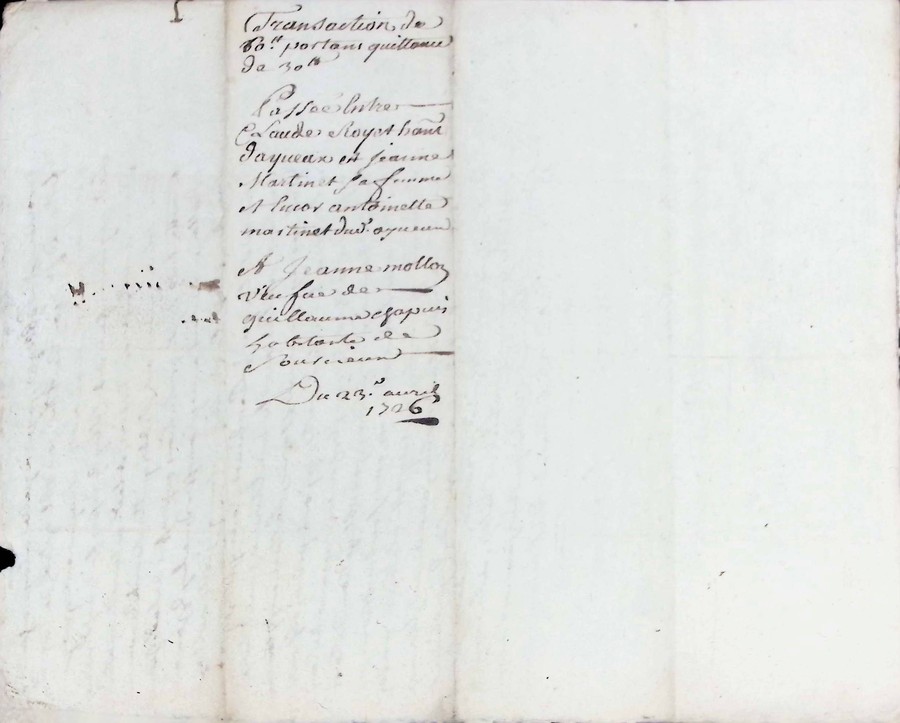 Transaction de
60.tt portant quittance
de 30tt
Passée Entre
Claude Royet hant
dayveux et jeanne
Martinet sa femme
et encor antoinette
martinet dud. ayveux
Et Jeanne mollon
veufue de
guillaume chapuis
habitante de
Sourcieux
Du 23.e avril
1726